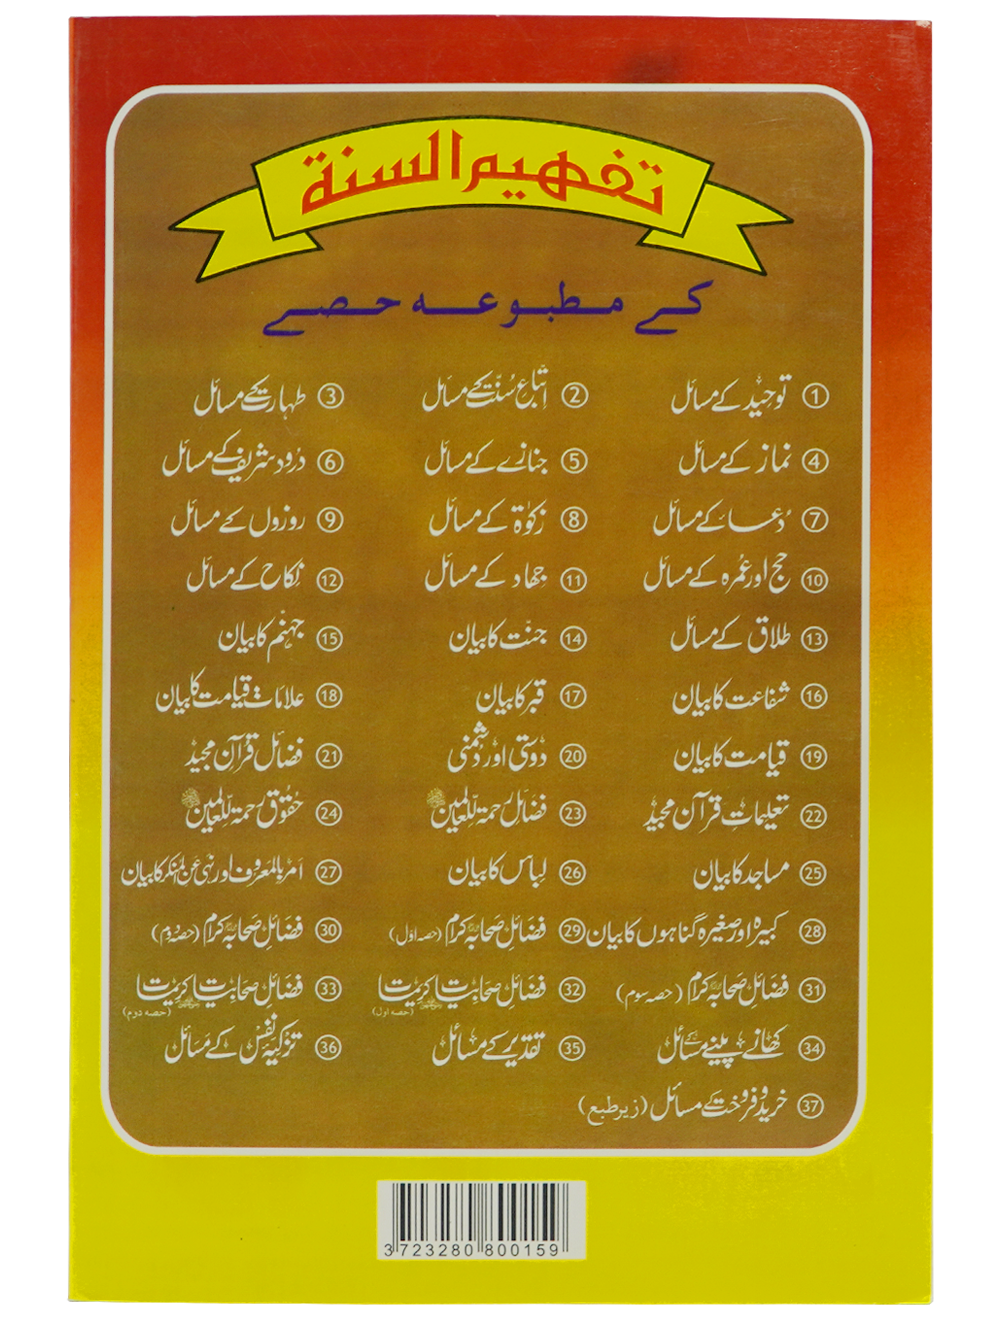 تفہیم السنة
کے مطبوعہ حصے
① توحید کے مسائل ② اتباعِ سُنّت کے مسائل ③ طہارت کے مسائل
④ نماز کے مسائل ⑤ جنازے کے مسائل ⑥ درود شریف کے مسائل
⑦ دُعا کے مسائل ⑧ زکوٰۃ کے مسائل ⑨ روزوں کے مسائل
⑩ حج اور عُمرہ کے مسائل ⑪ جہاد کے مسائل ⑫ نکاح کے مسائل
⑬ طلاق کے مسائل ⑭ جنّت کا بیان ⑮ جہنّم کا بیان
⑯ شفاعت کا بیان ⑰ قبر کا بیان ⑱ علاماتِ قیامت کا بیان
⑲ قیامت کا بیان ⑳ دوستی اور دشمنی ㉑ فضائلِ قرآن مجید
㉒ تعلیماتِ قرآن مجید ㉓ فضائلِ رحمۃ للعالمین ﷺ ㉔ حقوقِ رحمۃ للعالمین ﷺ
㉕ مساجد کا بیان ㉖ لباس کا بیان ㉗ امر بالمعروف اور نہی عن المنکر کا بیان
㉘ کبیرہ اور صغیرہ گناہوں کا بیان ㉙ فضائلِ صحابہ کرام (حصہ اول) ㉚ فضائلِ صحابہ کرام (حصہ دوم)
㉛ فضائلِ صحابہ کرام (حصہ سوم) ㉜ فضائلِ صحابیات کریمات (حصہ اول) ㉝ فضائلِ صحابیات کریمات (حصہ دوم)
㉞ کھانے پینے کے مسائل ㉟ تقدیر کے مسائل ㊱ تزکیہ نفس کے مسائل
㊲ خرید و فروخت کے مسائل (زیر طبع)
3 723280 800159